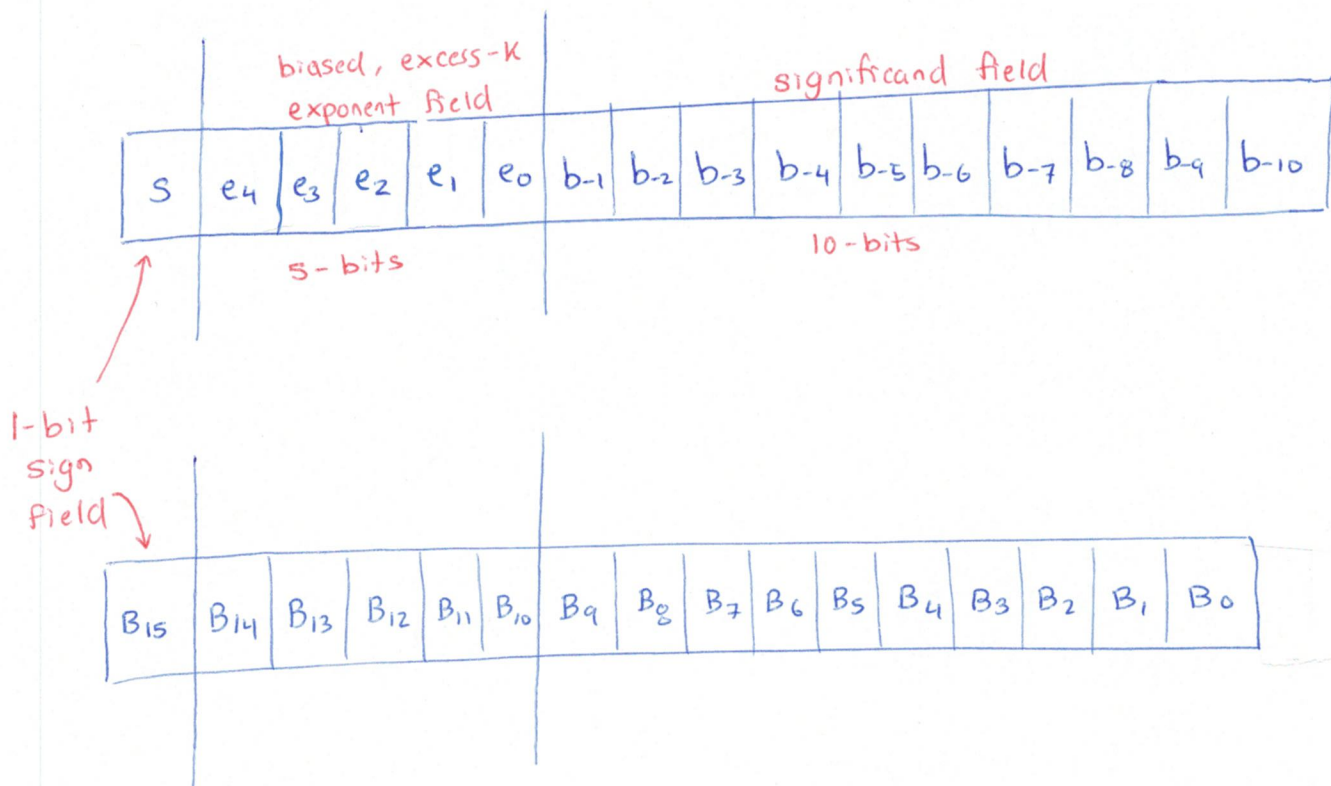 biased, excess-K
exponent field
significand field
s e4 e3 e2 e1 e0 b-1 b-2 b-3 b-4 b-5 b-6 b-7 b-8 b-9 b-10
5-bits
10-bits
1-bit
sign
field
B15 B14 B13 B12 B11 B10 B9 B8 B7 B6 B5 B4 B3 B2 B1 B0